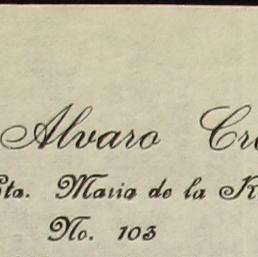 Alvaro Cr
Sta. Maria de la R
No. 103